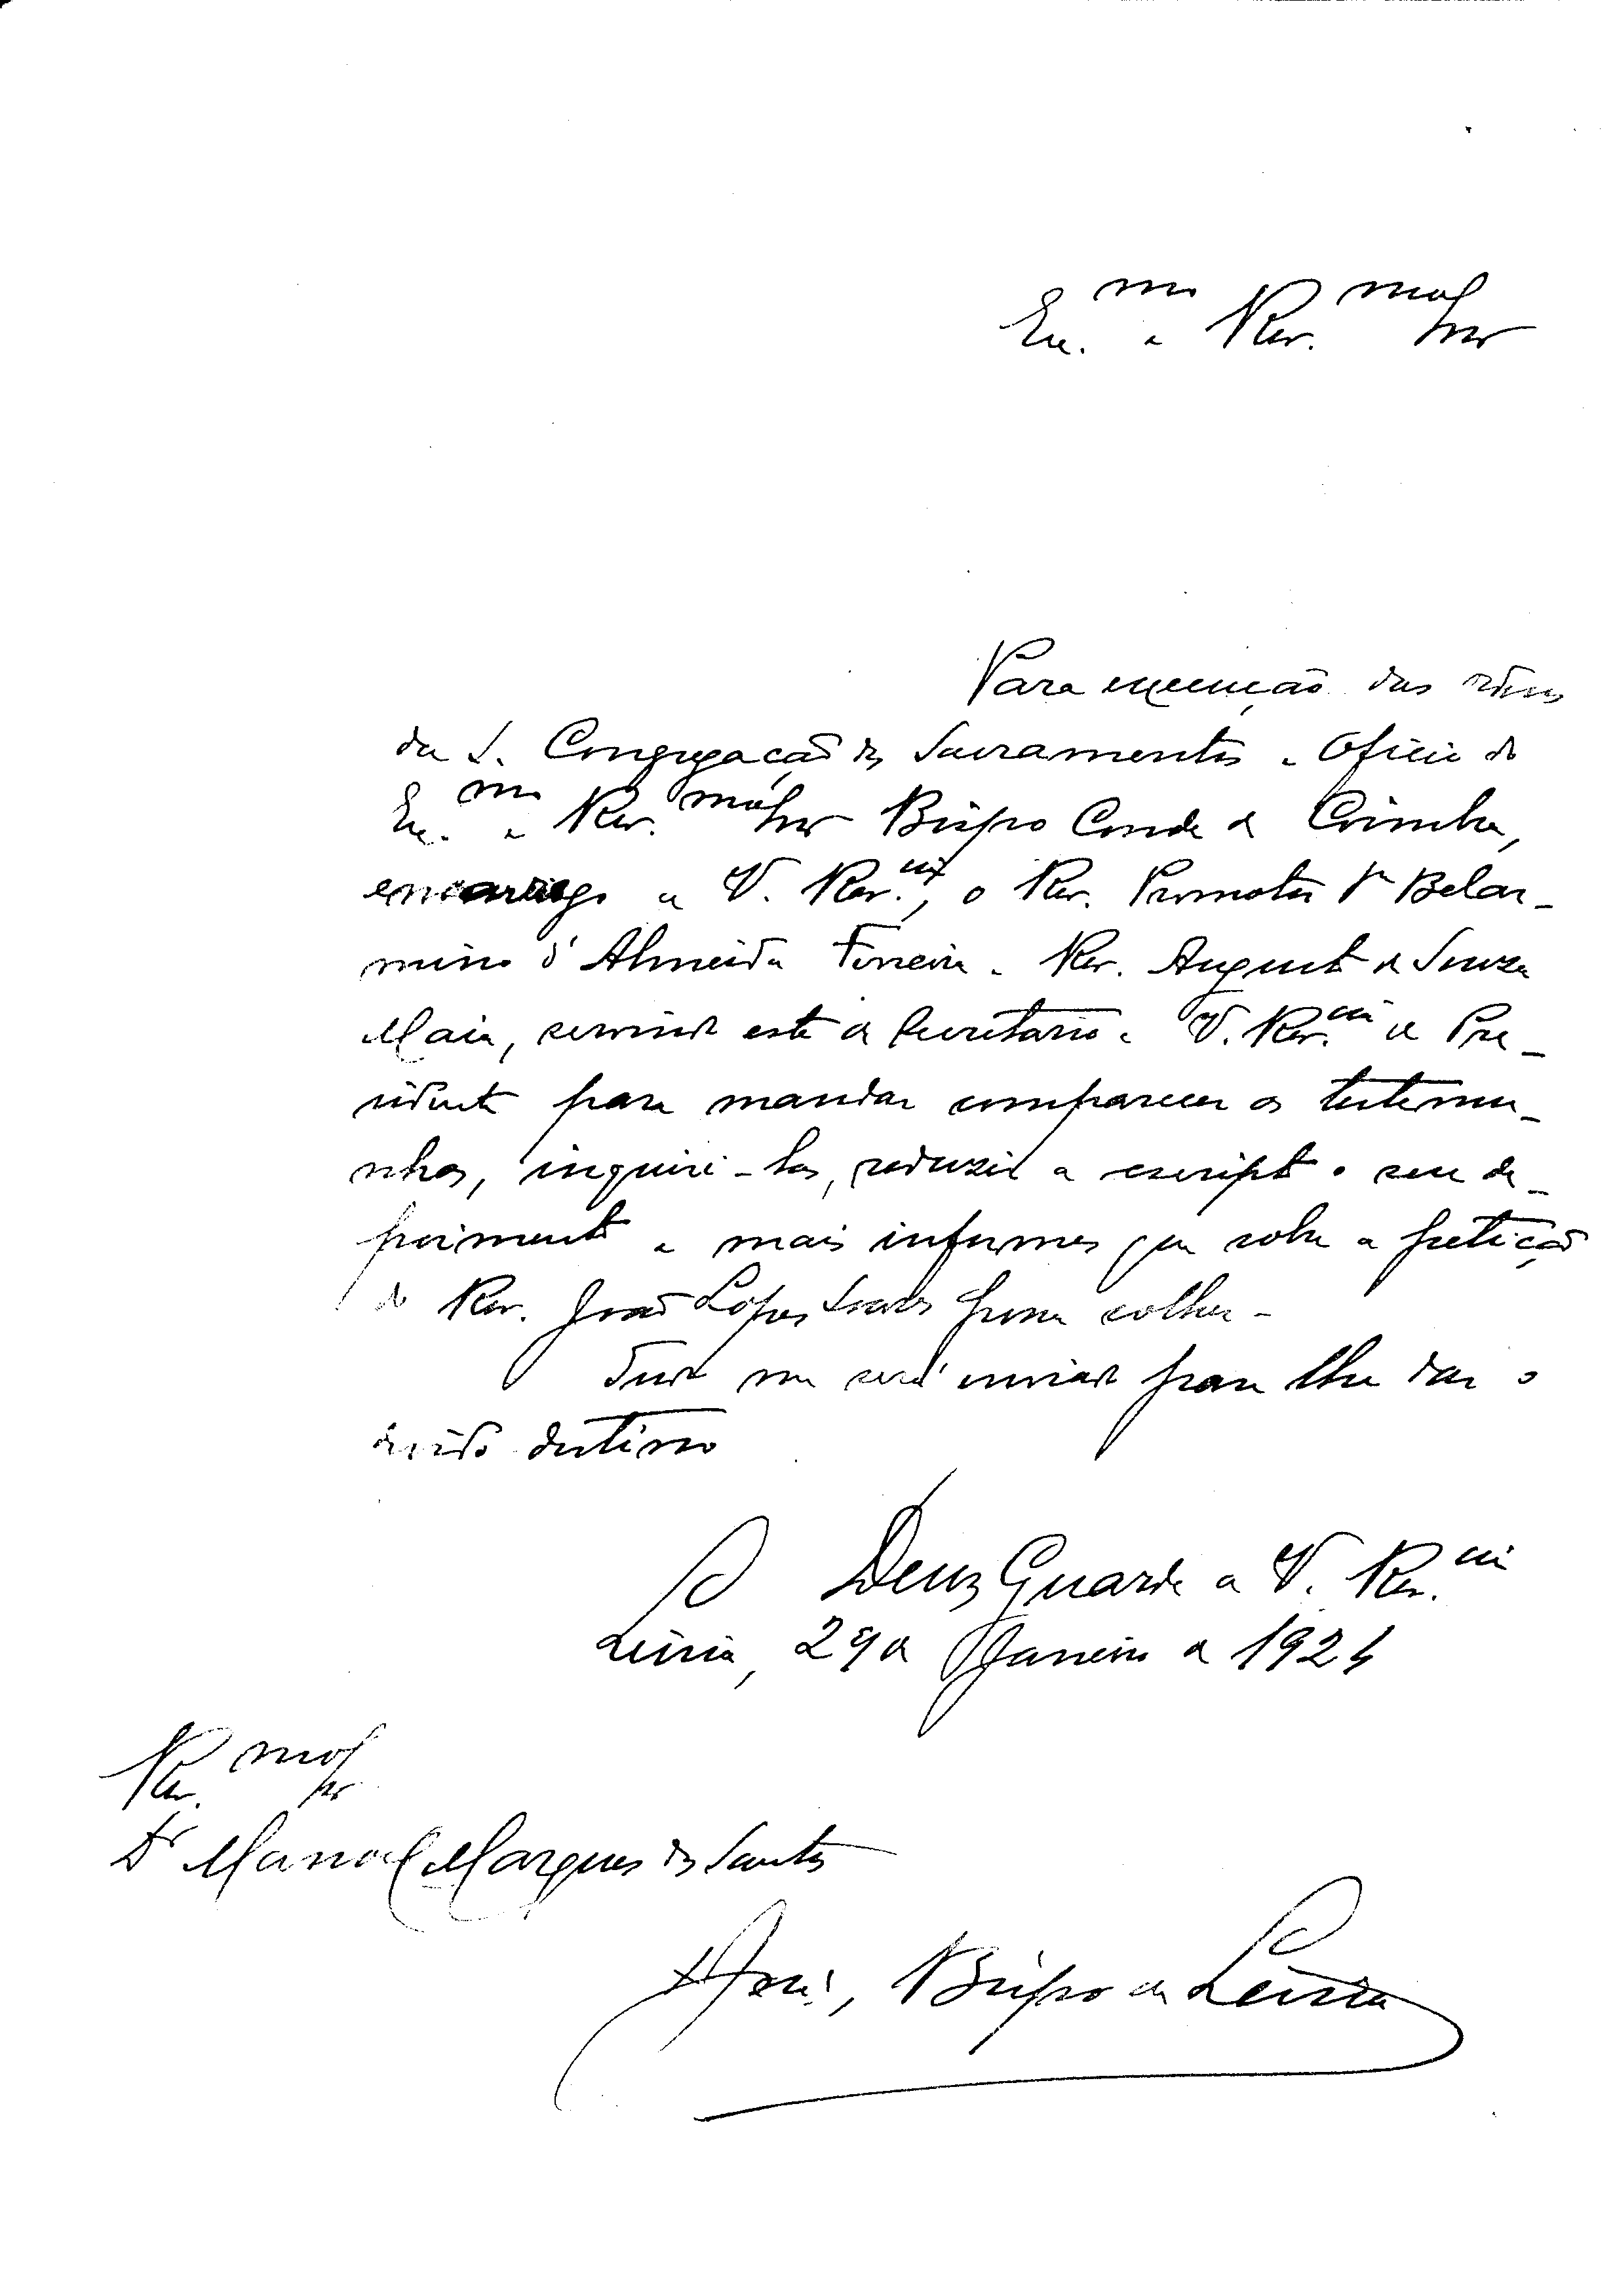 Ex.mo e Rev.mo Snr
Para execução das ordens
da S. Congregação dos Sacramentos e Oficio do
Ex.mo e Rev.mo Snr Bispo Conde de Coimbra,
encarrego a V. Rev.cia, o Rev. Promotor Dr Belar-
mino d'Almeida Ferreira e Rev. Augusto de Souza
Maia, servindo este de Secretario e V. Rev.cia de Pre-
sidente para mandar comparecer as testemu-
nhas, inquiri-las, reduzir a escripto o seu de-
poimento e mais informes que sobre a petição
do Rev. João Lopes Soares possa colher -
Tudo me será enviado para lhe dar o
devido destino
Deus Guarde a V. Rev.cia
Leiria, 29 de Janeiro de 1924
Rev.mo Snr
Dr Manoel Marques dos Santos
† José, Bispo de Leiria